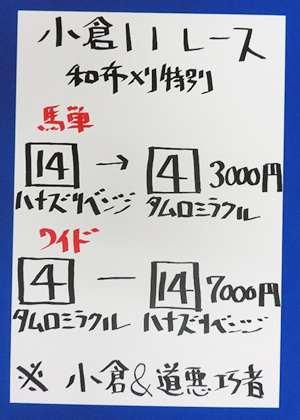 小倉11レース
和布刈特別
馬単
14 → 4 3000円
ハナズリベンジ タムロミラクル
ワイド
4 － 14 7000円
タムロミラクル ハナズリベンジ
※ 小倉&道悪巧者